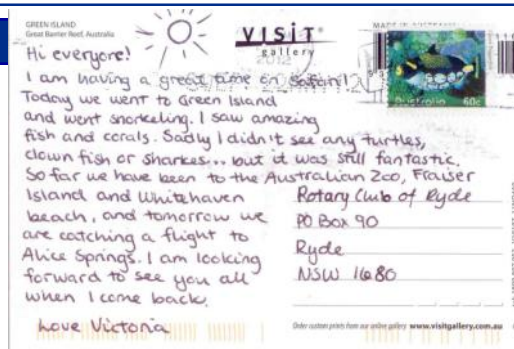 GREEN ISLAND
Great Barrier Reef, Australia
VISIT
gallery
2012
Australia
60c
Hi everyone!
I am having a great time on safari!
Today we went to Green Island
and went snorkeling. I saw amazing
fish and corals. Sadly I didn't see any turtles,
clown fish or sharkes... but it was still fantastic.
So far we have been to the Australian Zoo, Fraiser
Island and Whitehaven
beach, and tomorrow we
are catching a flight to
Alice Springs. I am looking
forward to see you all
when I come back.
Love Victoria
Rotary Club of Ryde
PO Box 90
Ryde
NSW 1680
Order custom prints from our online gallery www.visitgallery.com.au